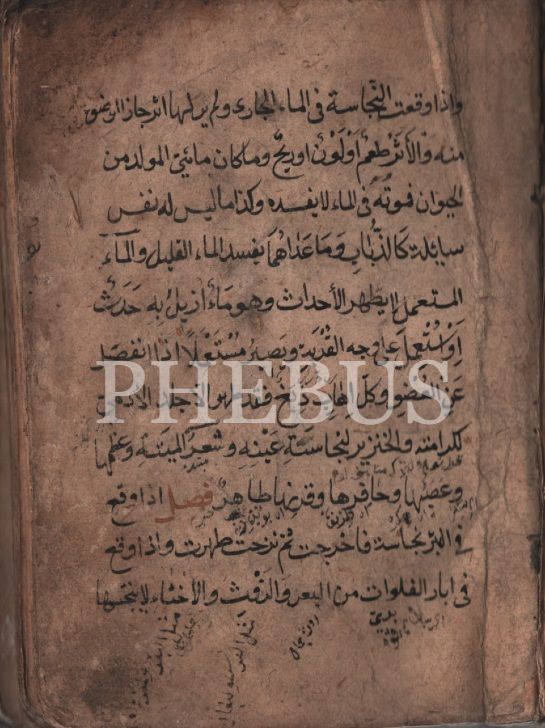 واذا وقعت النجاسة في الماء الجاري ولم ير لها اثر جاز الوضوء
منه والأثر طعم اولون اوريح وما كان مائي المولد من
الحيوان فموته في الماء لا يفسده وكذا ما ليس له نفس
سايلة كالذباب وما عداهما يفسد الماء القليل والماء
المستعمل لا يطهر الأحداث وهو ماء ازيل به حدث
او استعمل على وجه القربة ويصير مستعملا اذا انفصل
عن العضو وكل اهاب دبغ فقد طهر الا جلد الادمي
لكرامته والخنزير لنجاسة عينه وشعر الميتة وعظمها
وعصبها وحافرها وقرنها طاهر فصل اذا وقع
في البئر نجاسة فاخرجت ثم نزحت طهرت واذا وقع
في ابار الفلوات من البعر والروث والأخثاء لا ينجسها
PHEBUS